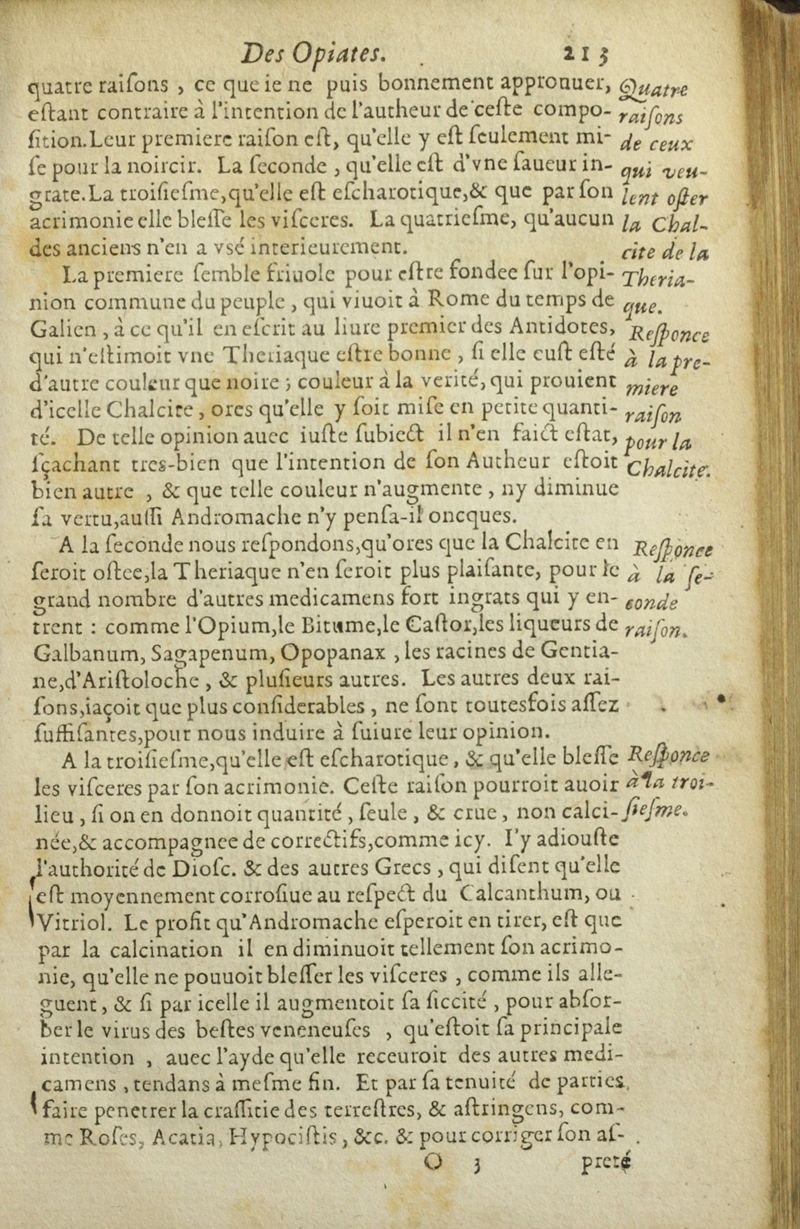 Des Opiates. 213
quatre raiſons, ce que ie ne puis bonnement approuuer,
eſtant contraire à l'intention de l'autheur de ceſte compo-
ſition. Leur premiere raiſon eſt, qu'elle y eſt ſeulement mi-
ſe pour la noircir. La ſeconde, qu'elle eſt d'vne ſaueur in-
grate. La troiſieſme, qu'elle eſt eſcharotique, & que par ſon
acrimonie elle bleſſe les viſceres. La quatrieſme, qu'aucun
des anciens n'en a vsé interieurement.
Quatre
raiſons
de ceux
qui veu-
lent oſter
la Chal-
cite de la
Theria-
que.
La premiere ſemble friuole pour eſtre fondee ſur l'opi-
nion commune du peuple, qui viuoit à Rome du temps de
Galien, à ce qu'il en eſcrit au liure premier des Antidotes,
qui n'eſtimoit vne Theriaque eſtre bonne, ſi elle euſt eſté
d'autre couleur que noire; couleur à la verité, qui prouient
d'icelle Chalcite, ores qu'elle y ſoit miſe en petite quanti-
té. De telle opinion auec iuſte ſubiect il n'en faict eſtat,
ſçachant tres-bien que l'intention de ſon Autheur eſtoit
bien autre, & que telle couleur n'augmente, ny diminue
ſa vertu, auſſi Andromache n'y penſa-il oncques.
Reſponce
à la pre-
miere
raiſon
pour la
Chalcite.
A la ſeconde nous reſpondons, qu'ores que la Chalcite en
ſeroit oſtee, la Theriaque n'en ſeroit plus plaiſante, pour le
grand nombre d'autres medicamens fort ingrats qui y en-
trent : comme l'Opium, le Bitume, le Caſtor, les liqueurs de
Galbanum, Sagapenum, Opopanax, les racines de Gentia-
ne, d'Ariſtoloche, & pluſieurs autres. Les autres deux rai-
ſons, iaçoit que plus conſiderables, ne ſont toutesfois aſſez
ſuffiſantes, pour nous induire à ſuiure leur opinion.
Reſponce
à la ſe-
conde
raiſon.
A la troiſieſme, qu'elle eſt eſcharotique, & qu'elle bleſſe
les viſceres par ſon acrimonie. Ceſte raiſon pourroit auoir
lieu, ſi on en donnoit quantité, ſeule, & crue, non calci-
née, & accompagnee de correctifs, comme icy. I'y adiouſte
l'authorité de Dioſc. & des autres Grecs, qui diſent qu'elle
eſt moyennement corroſiue au reſpect du Calcanthum, ou
Vitriol. Le profit qu'Andromache eſperoit en tirer, eſt que
par la calcination il en diminuoit tellement ſon acrimo-
nie, qu'elle ne pouuoit bleſſer les viſceres, comme ils alle-
guent, & ſi par icelle il augmentoit ſa ſiccité, pour abſor-
ber le virus des beſtes veneneuſes, qu'eſtoit ſa principale
intention, auec l'ayde qu'elle receuroit des autres medi-
camens, tendans à meſme fin. Et par ſa tenuité de parties,
faire penetrer la craſſitie des terreſtres, & aſtringens, com-
me Roſes, Acatia, Hypociſtis, &c. & pour corriger ſon aſ-
Reſponce
à la troi-
ſieſme.
O 3 preté